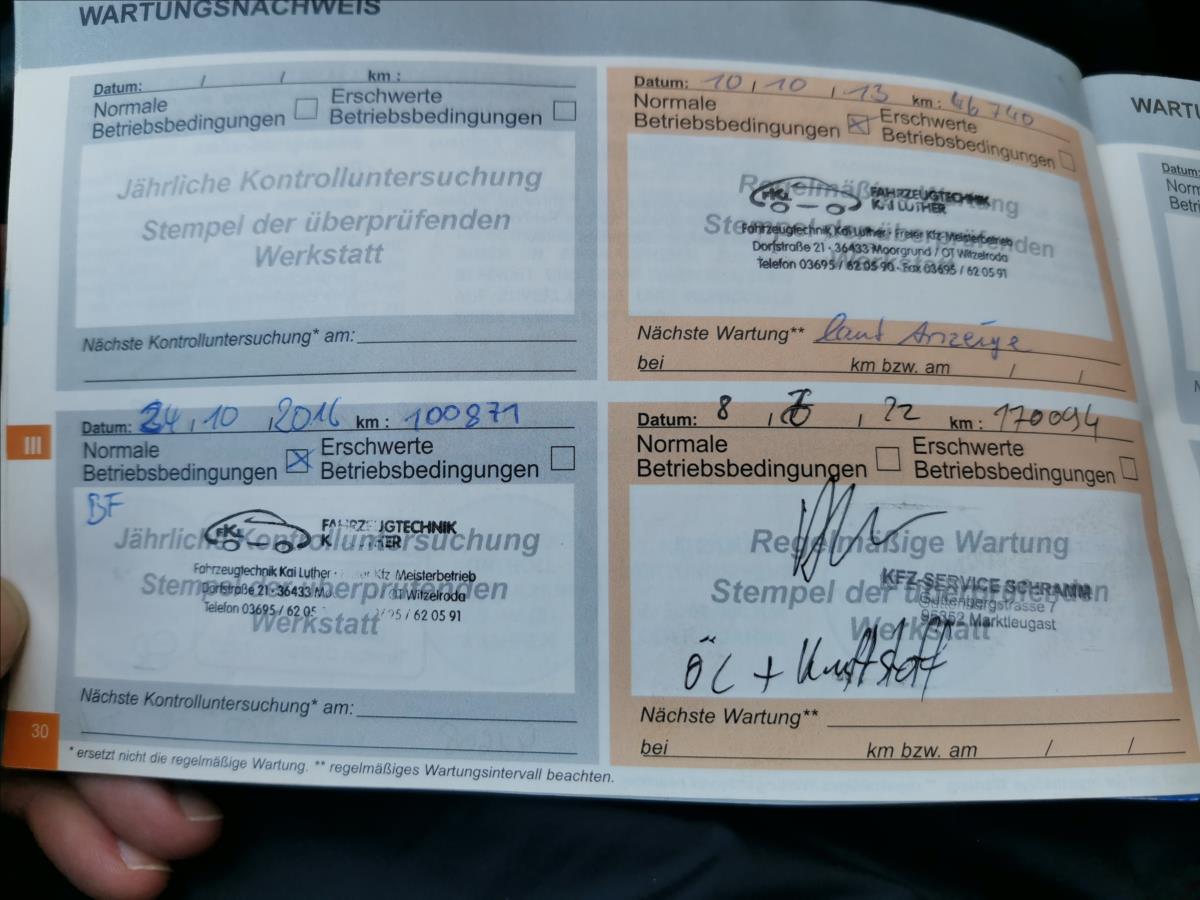 WARTUNGSNACHWEIS
Datum: / / km :
Normale Betriebsbedingungen
Erschwerte Betriebsbedingungen
Jährliche Kontrolluntersuchung
Stempel der überprüfenden
Werkstatt
Nächste Kontrolluntersuchung* am:
Datum: 10 / 10 / 13 km : 46 740
Normale Betriebsbedingungen
Erschwerte Betriebsbedingungen
Regelmäßige Wartung
Stempel der überprüfenden
Werkstatt
FKL FAHRZEUGTECHNIK
KAI LUTHER
Fahrzeugtechnik Kai Luther · Freier Kfz-Meisterbetrieb
Dorfstraße 21 · 36433 Moorgrund / OT Witzelroda
Telefon 03695 / 62 05 90 · Fax 03695 / 62 05 91
Nächste Wartung** laut Anzeige
bei km bzw. am / /
III
Datum: 24 / 10 / 2016 km : 100871
Normale Betriebsbedingungen
Erschwerte Betriebsbedingungen
BF
Jährliche Kontrolluntersuchung
Stempel der überprüfenden
Werkstatt
FKL FAHRZEUGTECHNIK
K LUTHER
Fahrzeugtechnik Kai Luther · Kfz Meisterbetrieb
Dorfstraße 21 · 36433 OT Witzelroda
Telefon 03695 / 62 05 / 62 05 91
Nächste Kontrolluntersuchung* am:
Datum: 8 / / 22 km : 170094
Normale Betriebsbedingungen
Erschwerte Betriebsbedingungen
Regelmäßige Wartung
Stempel der überprüfenden
Werkstatt
KFZ-SERVICE SCHRAMM
Guttenbergstrasse 7
95352 Marktleugast
ÖL +
Nächste Wartung**
bei km bzw. am / /
30
* ersetzt nicht die regelmäßige Wartung. ** regelmäßiges Wartungsintervall beachten.
WARTU
Datum: